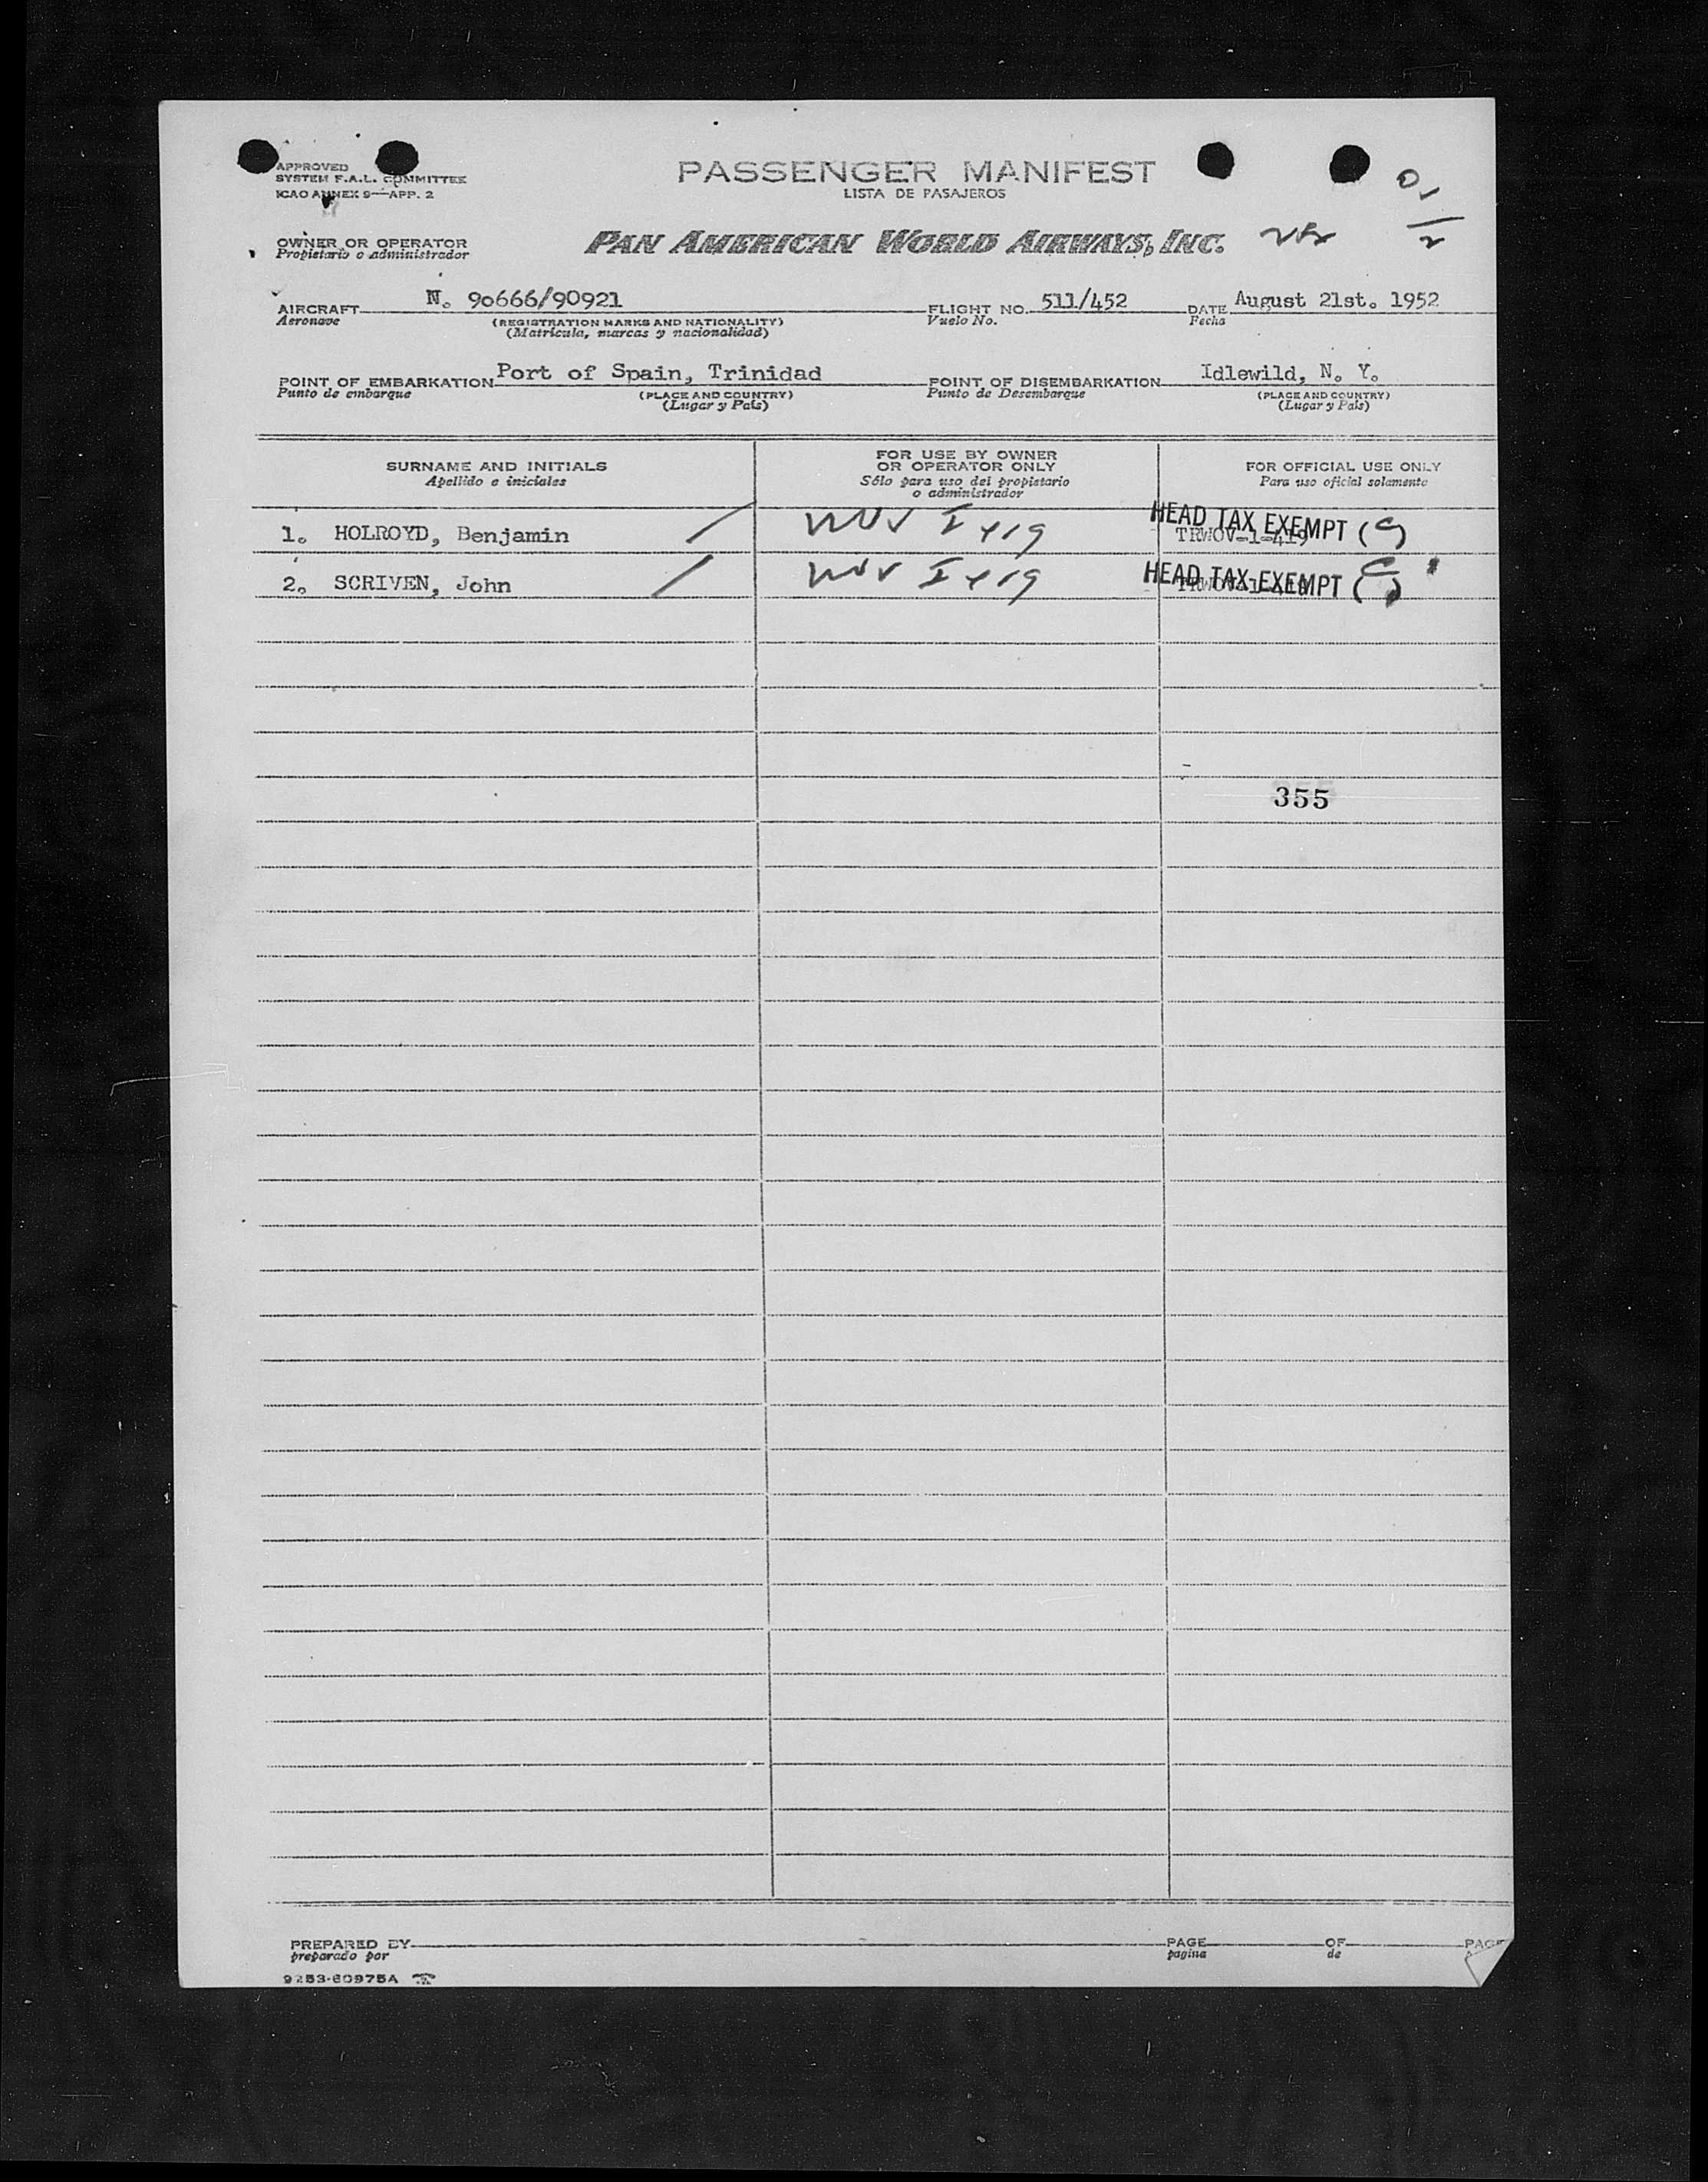 APPROVED
SYSTEM F.A.L. COMMITTEE
ICAO ANNEX 9—APP. 2
PASSENGER MANIFEST
LISTA DE PASAJEROS
OWNER OR OPERATOR
Propietario o administrador
PAN AMERICAN WORLD AIRWAYS, INC.
AIRCRAFT N. 90666/90921 FLIGHT NO. 511/452 DATE August 21st. 1952
Aeronave (REGISTRATION MARKS AND NATIONALITY) Vuelo No. Fecha
(Matrícula, marcas y nacionalidad)
POINT OF EMBARKATION Port of Spain, Trinidad POINT OF DISEMBARKATION Idlewild, N. Y.
Punto de embarque (PLACE AND COUNTRY) Punto de Desembarque (PLACE AND COUNTRY)
(Lugar y País) (Lugar y País)
SURNAME AND INITIALS
Apellido e iniciales
FOR USE BY OWNER
OR OPERATOR ONLY
Sólo para uso del propietario
o administrador
FOR OFFICIAL USE ONLY
Para uso oficial solamente
1. HOLROYD, Benjamin HEAD TAX EXEMPT
2. SCRIVEN, John HEAD TAX EXEMPT
355
PREPARED BY PAGE OF PAGE
preparado por pagina de
9253-60975A